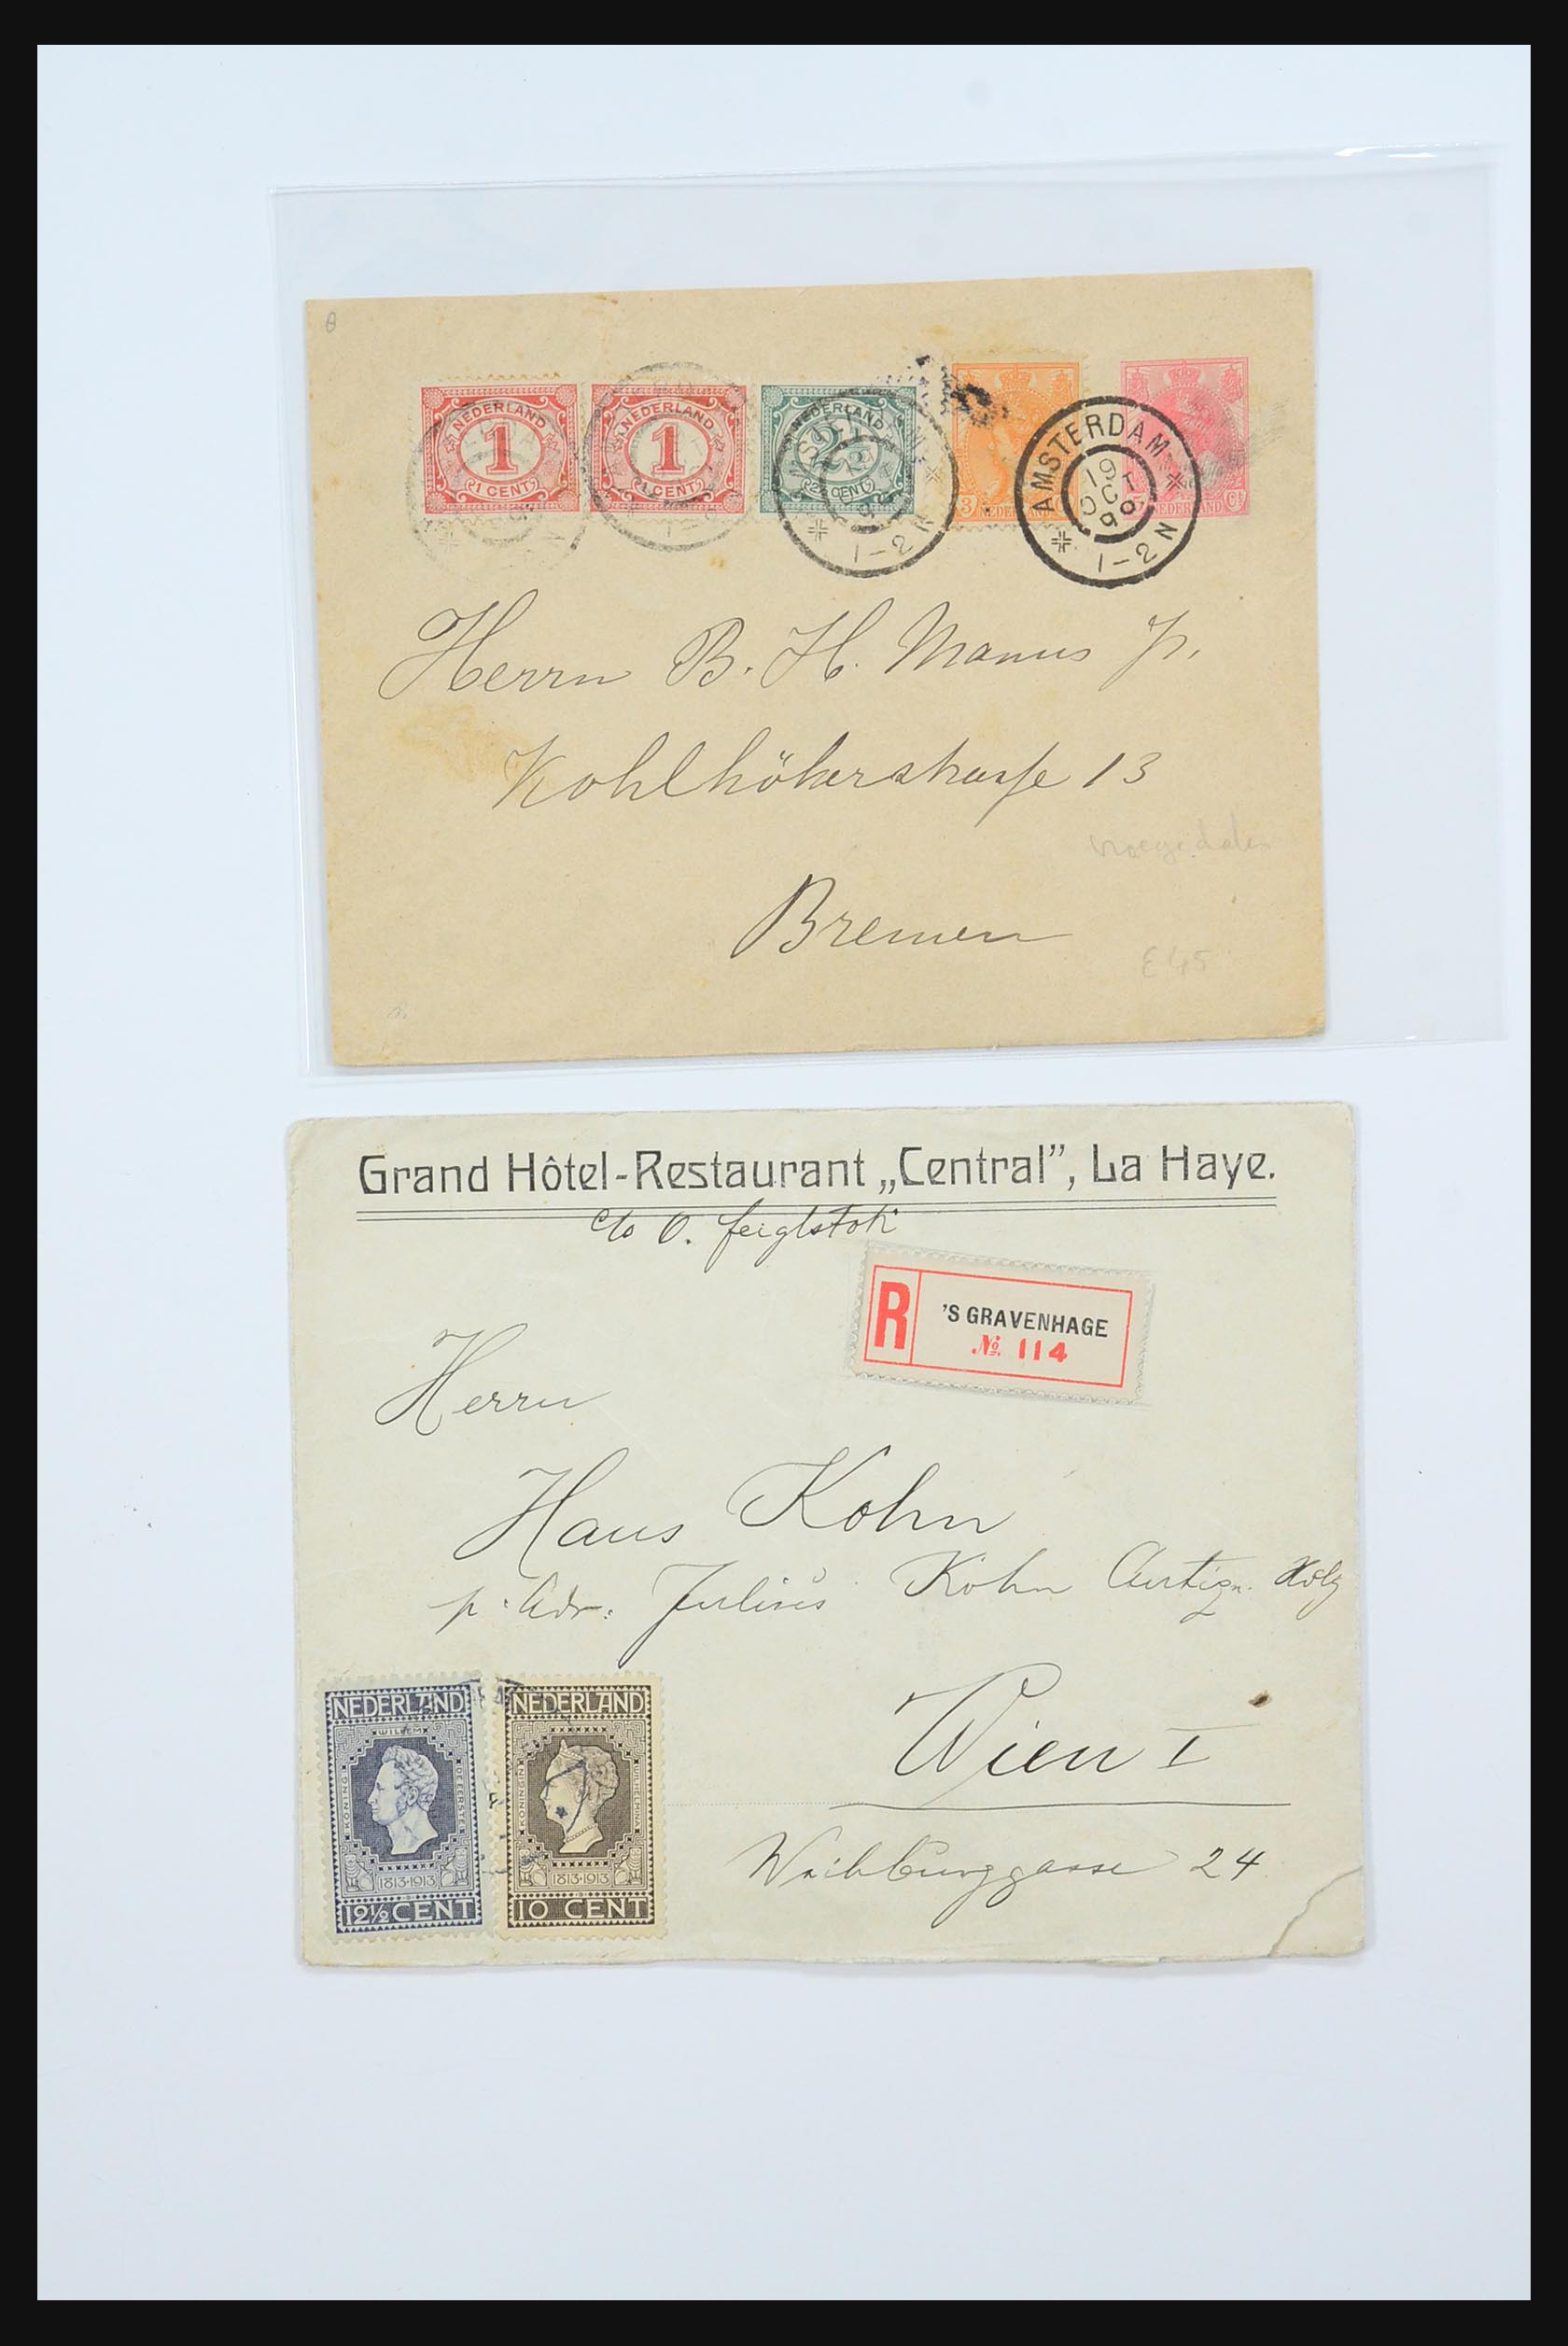 NEDERLAND
1
1 CENT
NEDERLAND
1
1 CENT
NEDERLAND
2½
2½ CENT
1-2 N
3
NEDERLAND
AMSTERDAM
19
OCT
99
1-2 N
5
NEDERLAND Ct
Herrn B. H. Manus Jr.
Kohlhökerstrasse 13
Bremen
E45
Grand Hôtel-Restaurant „Central”, La Haye.
c/o O. Feiglstok
R
'S GRAVENHAGE
No. 114
Herrn
Hans Kohn
p. Adr. Julius Kohn Holz
Wien I
Weihburggasse 24
NEDERLAND
WILLEM
KONING
DE EERSTE
1813-1913
12½ CENT
NEDERLAND
KONINGIN
WILHELMINA
1813-1913
10 CENT